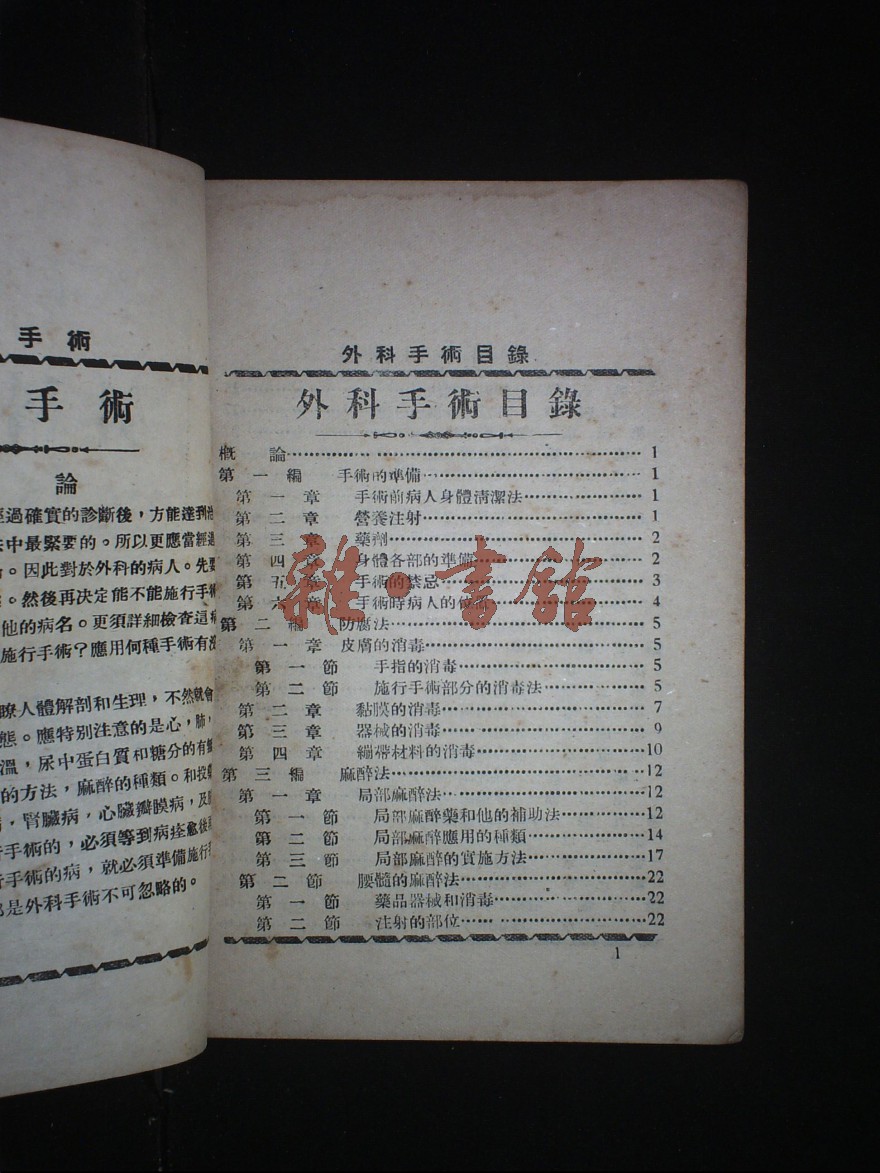 手術
手術
論
經過確實的診斷後，方能達到
法中最緊要的。所以更應當經過
。因此對於外科的病人。先要
。然後再決定能不能施行手術
他的病名。更須詳細檢查這病
施行手術？應用何種手術有
瞭人體解剖和生理，不然就會
態。應特別注意的是心，肺，
溫，尿中蛋白質和糖分的有無
的方法，麻醉的種類。和
，腎臟病，心臟瓣膜病，及
手術的，必須等到病痊愈後
手術的病，就必須準備施行
是外科手術不可忽略的。
外科手術目錄
外科手術目錄
概論 1
第一編 手術的準備 1
第一章 手術前病人身體清潔法 1
第二章 營養注射 1
第三章 藥劑 2
第四章 身體各部的準備 2
第五章 手術的禁忌 3
第六章 手術時病人的位 4
第二編 防腐法 5
第一章 皮膚的消毒 5
第一節 手指的消毒 5
第二節 施行手術部分的消毒法 5
第二章 黏膜的消毒 7
第三章 器械的消毒 9
第四章 綳帶材料的消毒 10
第三編 麻醉法 12
第一章 局部麻醉法 12
第一節 局部麻醉藥和他的補助法 12
第二節 局部麻醉應用的種類 14
第三節 局部麻醉的實施方法 17
第二節 腰髓的麻醉法 22
第一節 藥品器械和消毒 22
第二節 注射的部位 22
1
雜·書館